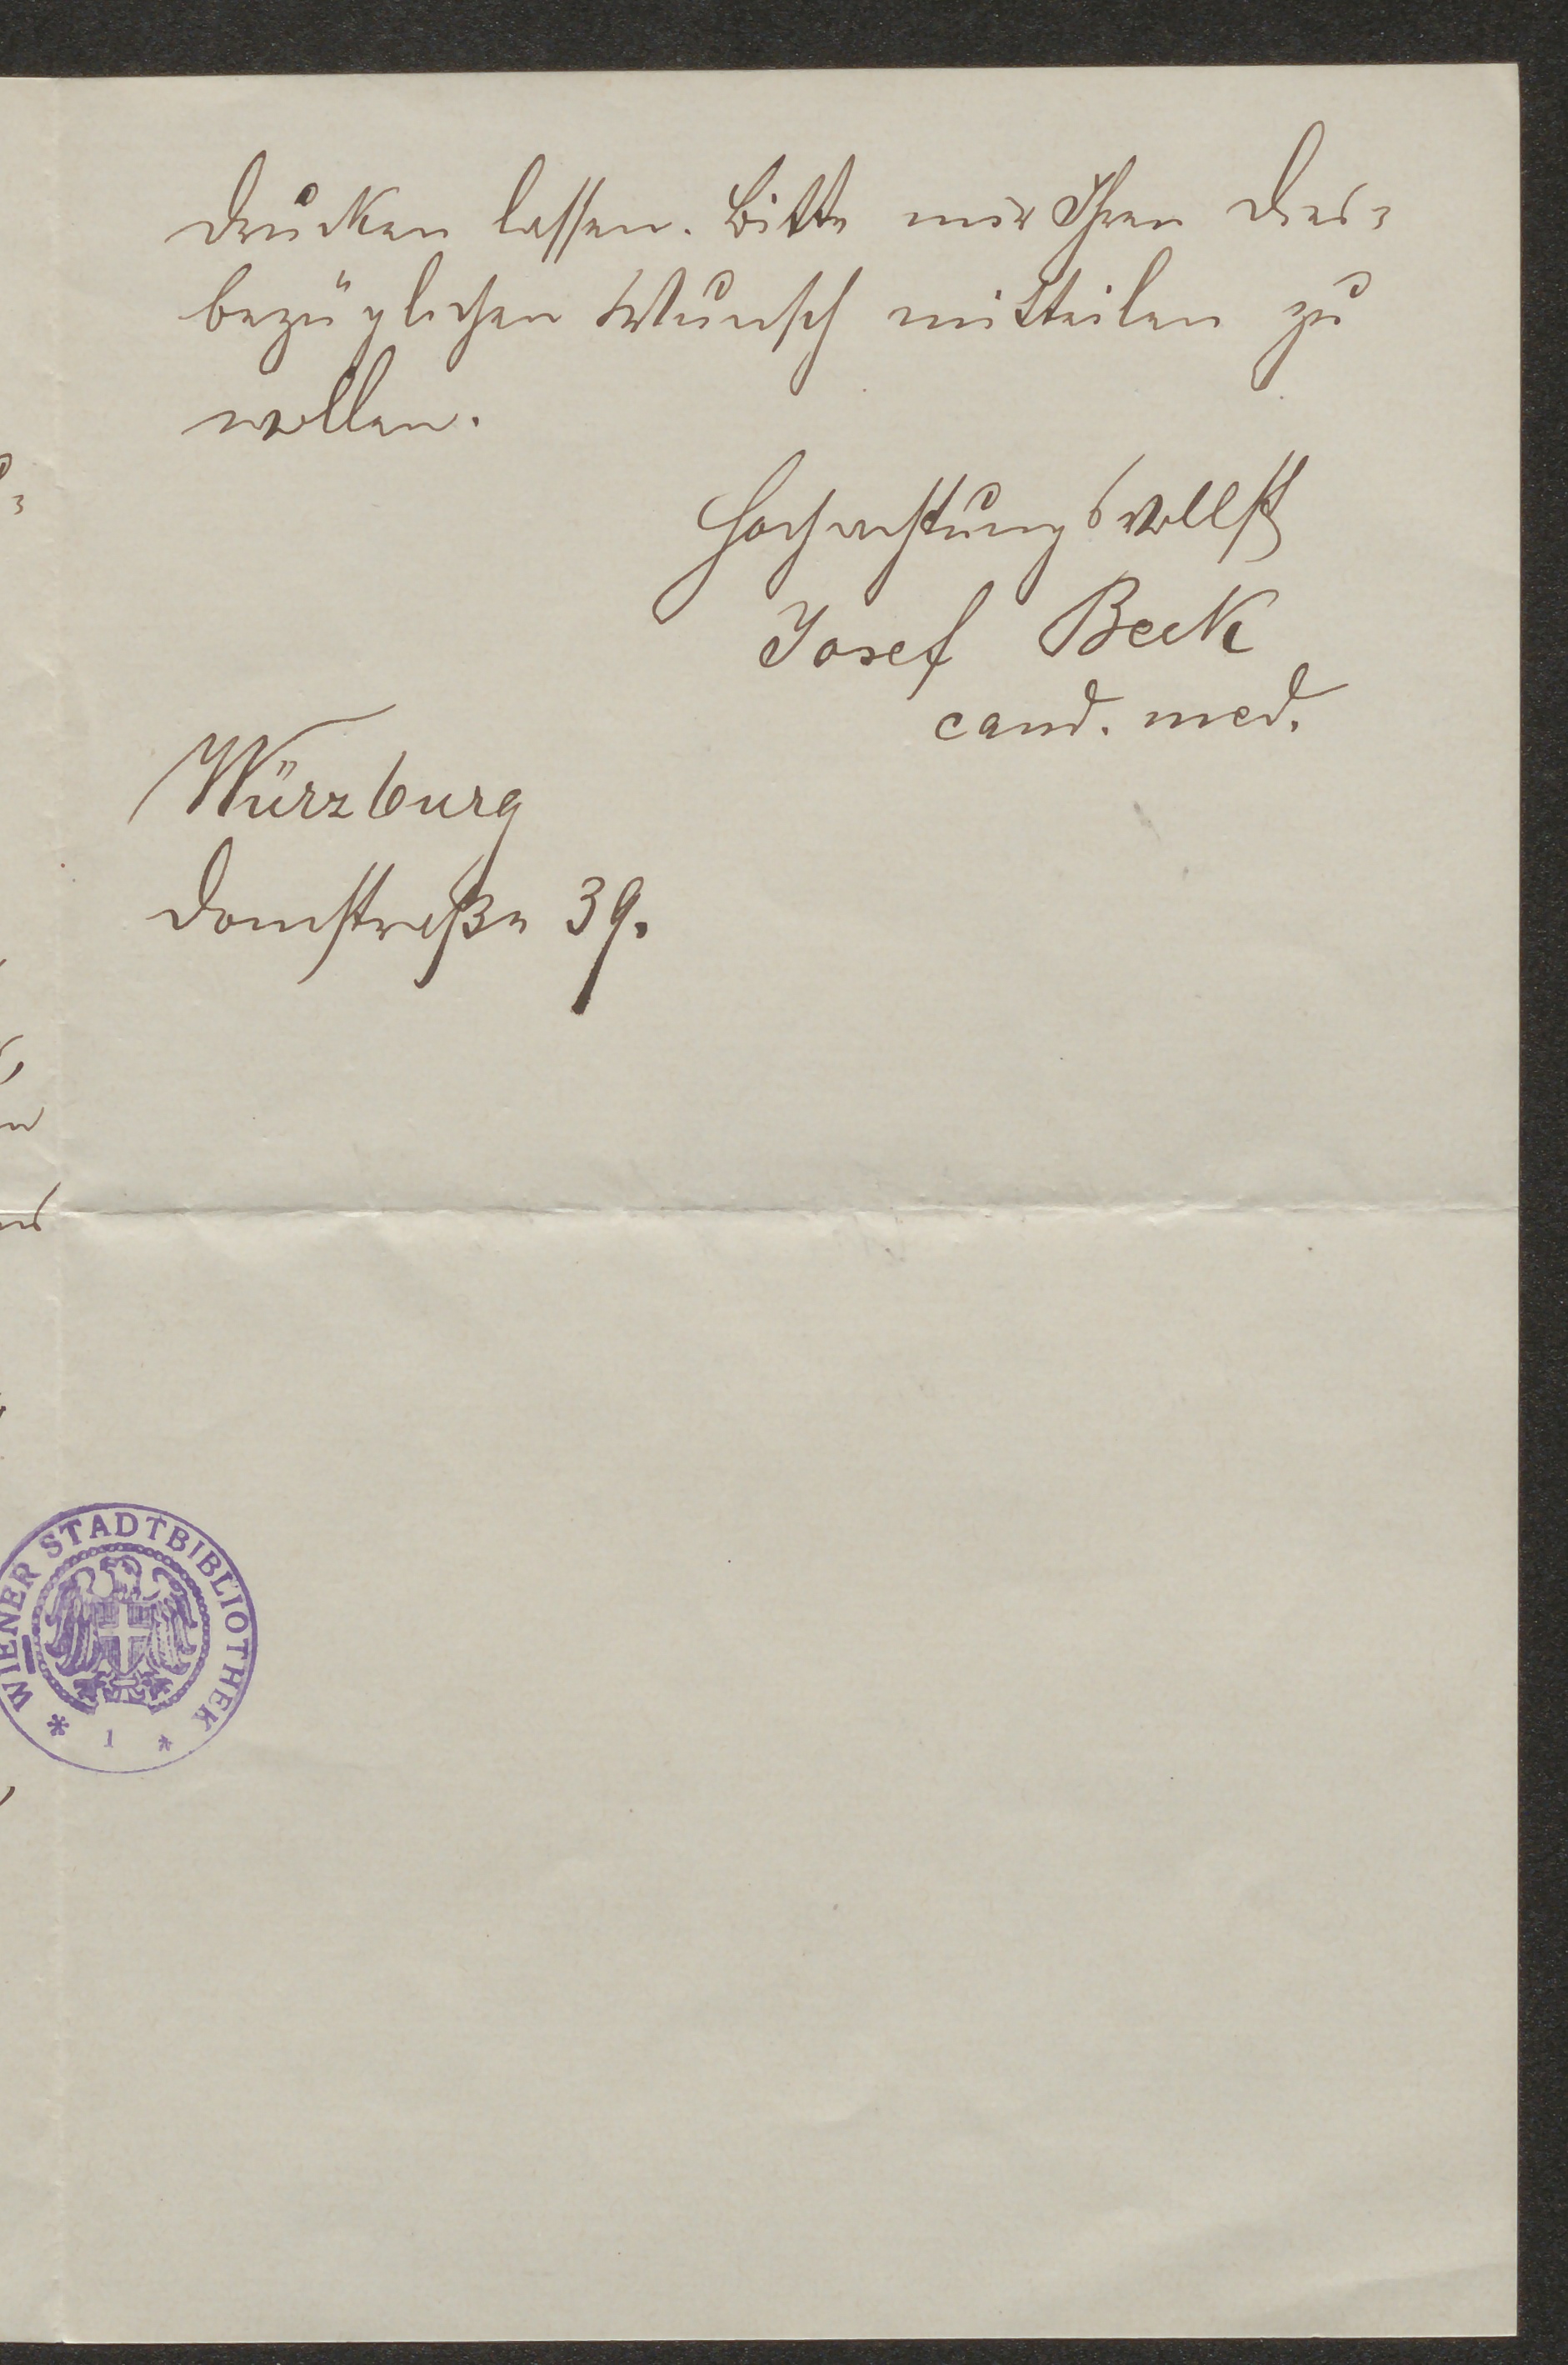 drucken lassen. Bitte mir Ihren dies-
bezüglichen Wunsch mitteilen zu
wollen.
Hochachtungsvollst
Josef Beck
cand. med.
Würzburg
Domstraße 39.
WIENER STADTBIBLIOTHEK
* 1 *